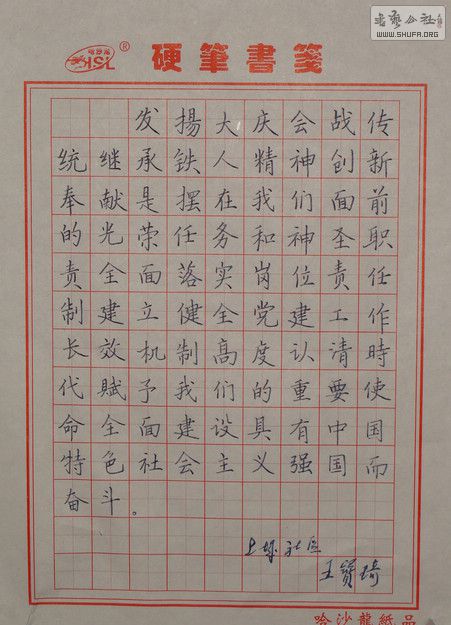 書艺公社
WWW.SHUFA.ORG
哈沙龍
HSL®
硬筆書箋
发揚大庆会战传
统继承铁人精神创新
奉献是摆在我们面前
的光荣任务和神圣职
责全面落实岗位责任
制建立健全党建工作
长效机制高度认清時
代賦予我们的重要使
命全面建设具有中国
特色社会主义强国而
奋斗。
王贊琦
哈沙龍紙品